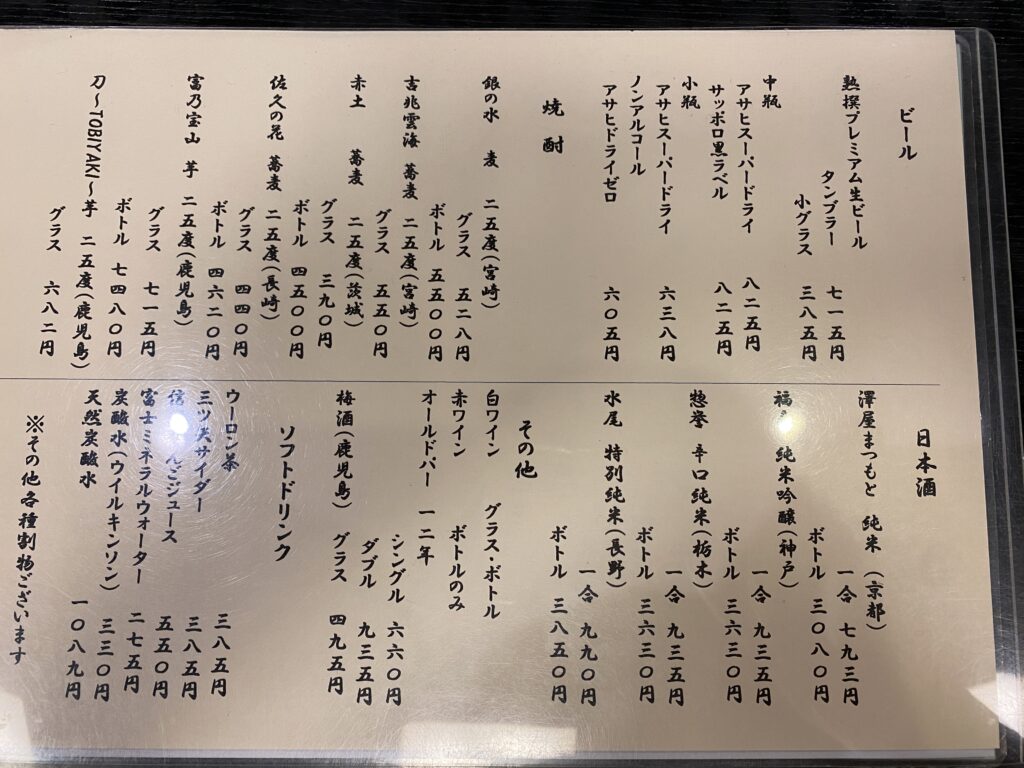 ビール
熟撰プレミアム生ビール
タンブラー 七一五円
小グラス 三八五円
中瓶
アサヒスーパードライ 八二五円
サッポロ黒ラベル 八二五円
小瓶
アサヒスーパードライ 六三八円
ノンアルコール
アサヒドライゼロ 六〇五円
焼酎
銀の水 麦 二五度(宮崎)
グラス 五二八円
ボトル 五五〇〇円
古兆雲海 蕎麦 二五度(宮崎)
グラス 五五〇円
赤土 蕎麦 二五度(茨城)
グラス 三九〇円
ボトル 四五〇〇円
佐久の花 蕎麦 二五度(長崎)
グラス 四四〇円
ボトル 四六二〇円
富乃宝山 芋 二五度(鹿児島)
グラス 七一五円
ボトル 七四八〇円
刀～TOBIYAKI～芋 二五度(鹿児島)
グラス 六八二円
日本酒
澤屋まつもと 純米 (京都)
一合 七九三円
ボトル 三〇八〇円
福 純米吟醸(神戸)
一合 九三五円
ボトル 三六三〇円
惣誉 辛口純米(栃木)
一合 九三五円
ボトル 三六三〇円
水尾 特別純米(長野)
一合 九九〇円
ボトル 三八五〇円
その他
白ワイン グラス・ボトル
赤ワイン ボトルのみ
オールドパー 一二年
シングル 六六〇円
ダブル 九三五円
梅酒(鹿児島) グラス 四九五円
ソフトドリンク
ウーロン茶 三八五円
三ツ矢サイダー 三八五円
んごジュース 五五〇円
富士ミネラルウォーター 二七五円
炭酸水(ウイルキンソン) 三三〇円
天然炭酸水 一〇八九円
※その他各種割物ございます